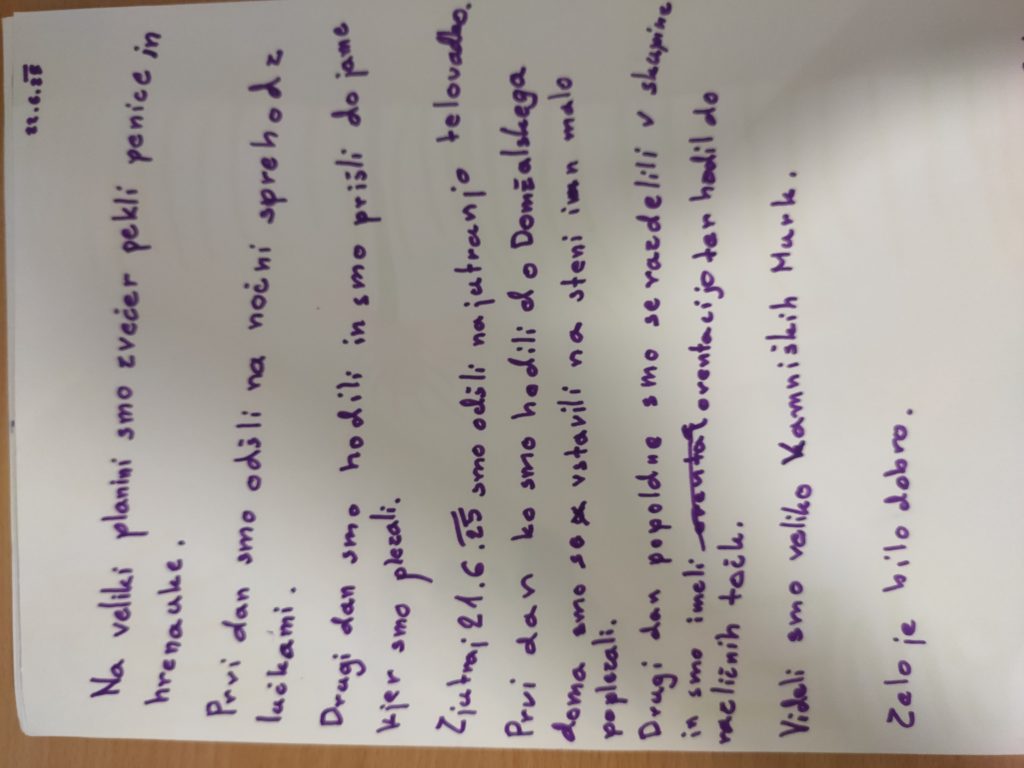 22.6.25
Na veliki planini smo zvečer pekli penice in
hrenauke.
Prvi dan smo odšli na nočni sprehod z
lučkami.
Drugi dan smo hodili in smo prišli do jame
kjer smo plezali.
Zjutraj 21.6.25 smo odšli na jutranjo telovadbo.
Prvi dan ko smo hodili do Domžalskega
doma smo se vstavili na steni in malo
poplezali.
Drugi dan popoldne smo se razdelili v skupine
in smo imeli orentacijo ter hodil do
različnih točk.
Videli smo veliko Kamniških Murk.
Zelo je bilo dobro.